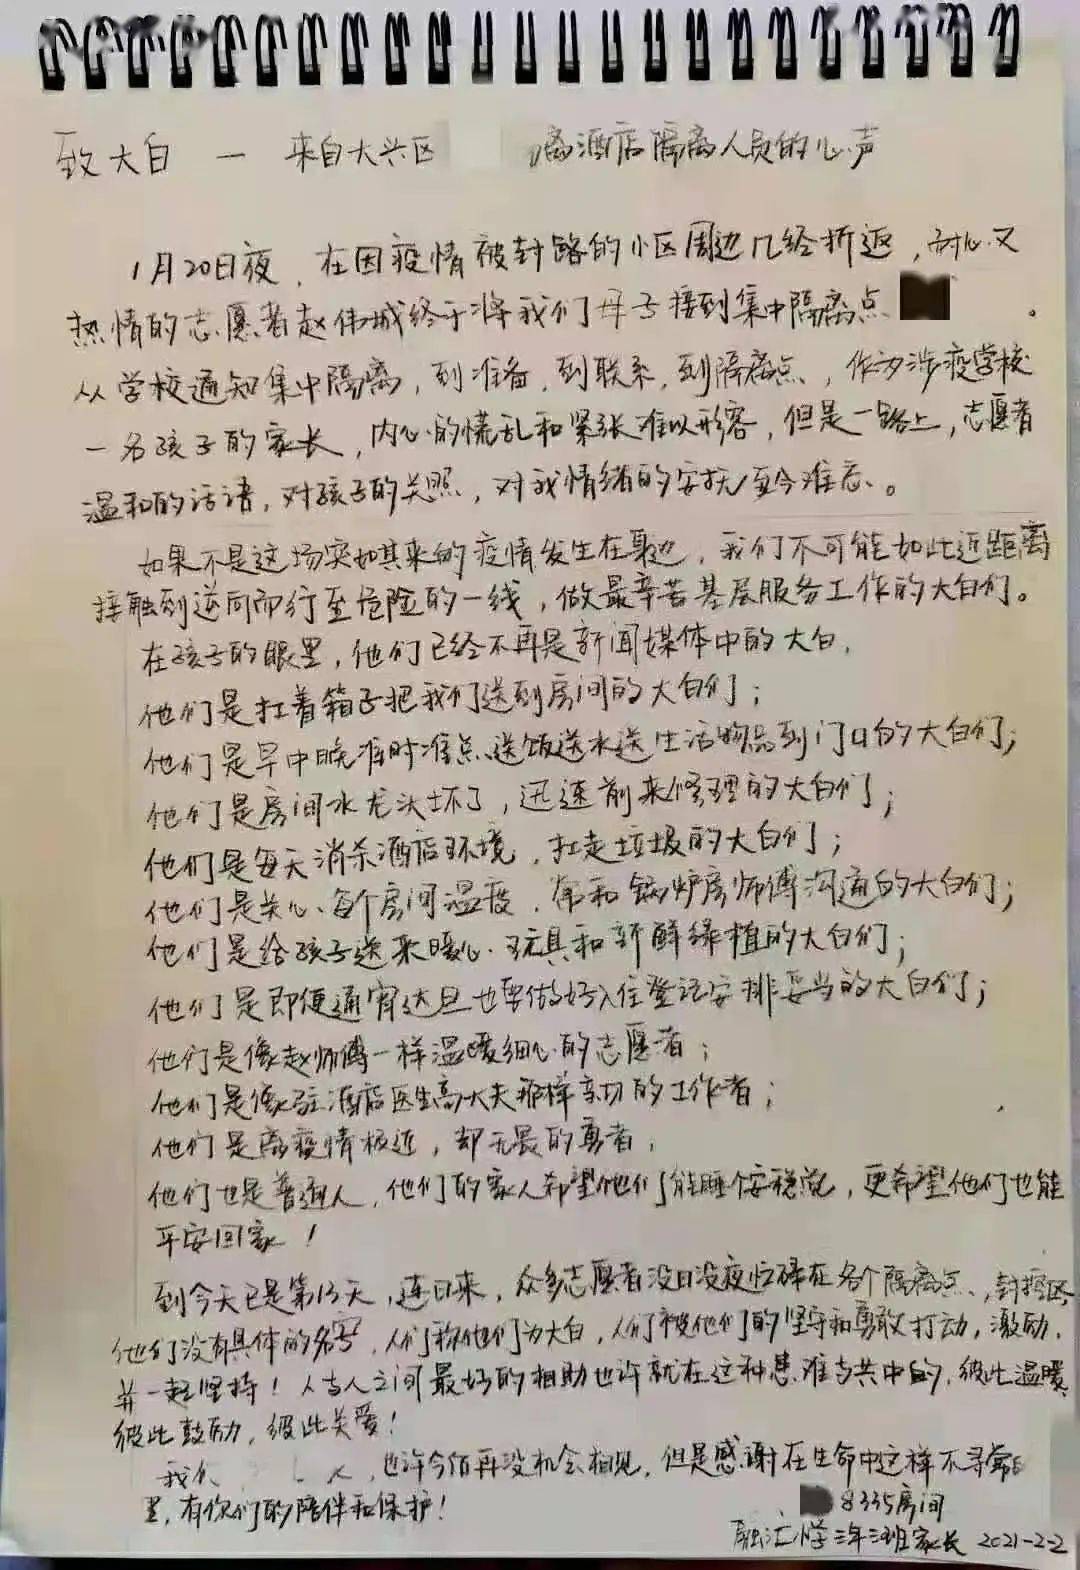 致大白 — 来自大兴区 离酒店隔离人员的心声
1月20日夜，在因疫情被封路的小区周边几经折返，耐心又
热情的志愿者赵伟城终于将我们母子接到集中隔离点 。
从学校通知集中隔离，到准备，到联系，到隔离点，作为涉疫学校
一名孩子的家长，内心的慌乱和紧张难以形容，但是一路上，志愿者
温和的话语，对孩子的关照，对我情绪的安抚至今难忘。
如果不是这场突如其来的疫情发生在身边，我们不可能如此近距离
接触到逆向而行至危险的一线，做最辛苦基层服务工作的大白们。
在孩子的眼里，他们已经不再是新闻媒体中的大白，
他们是扛着箱子把我们送到房间的大白们；
他们是早中晚准时准点送饭送水送生活物品到门口的大白们；
他们是房间水龙头坏了，迅速前来修理的大白们；
他们是每天消杀酒店环境，扛走垃圾的大白们；
他们是关心每个房间温度，常和锅炉房师傅沟通的大白们；
他们是给孩子送来暖心玩具和新鲜绿植的大白们；
他们是即便通宵达旦也要做好入住登记安排妥当的大白们；
他们是像赵师傅一样温暖细心的志愿者；
他们是像驻酒店医生高大夫那样亲切的工作者；
他们是离疫情极近，却无畏的勇者，
他们也是普通人，他们的家人希望他们能睡个安稳觉，更希望他们也能
平安回家！
到今天已是第13天，连日来，众多志愿者没日没夜忙碌在各个隔离点、封控区，
他们没有具体的名字，人们称他们为大白，人们被他们的坚守和勇敢打动，激励，
并一起坚持！人与人之间最好的相助也许就在这种患难与共中的，彼此温暖，
彼此鼓励，彼此关爱！
我们 ，也许今后再没机会相见，但是感谢在生命中这样不寻常的
里，有你们的陪伴和保护！
8335房间
融汇小学三年三班家长 2021-2-2